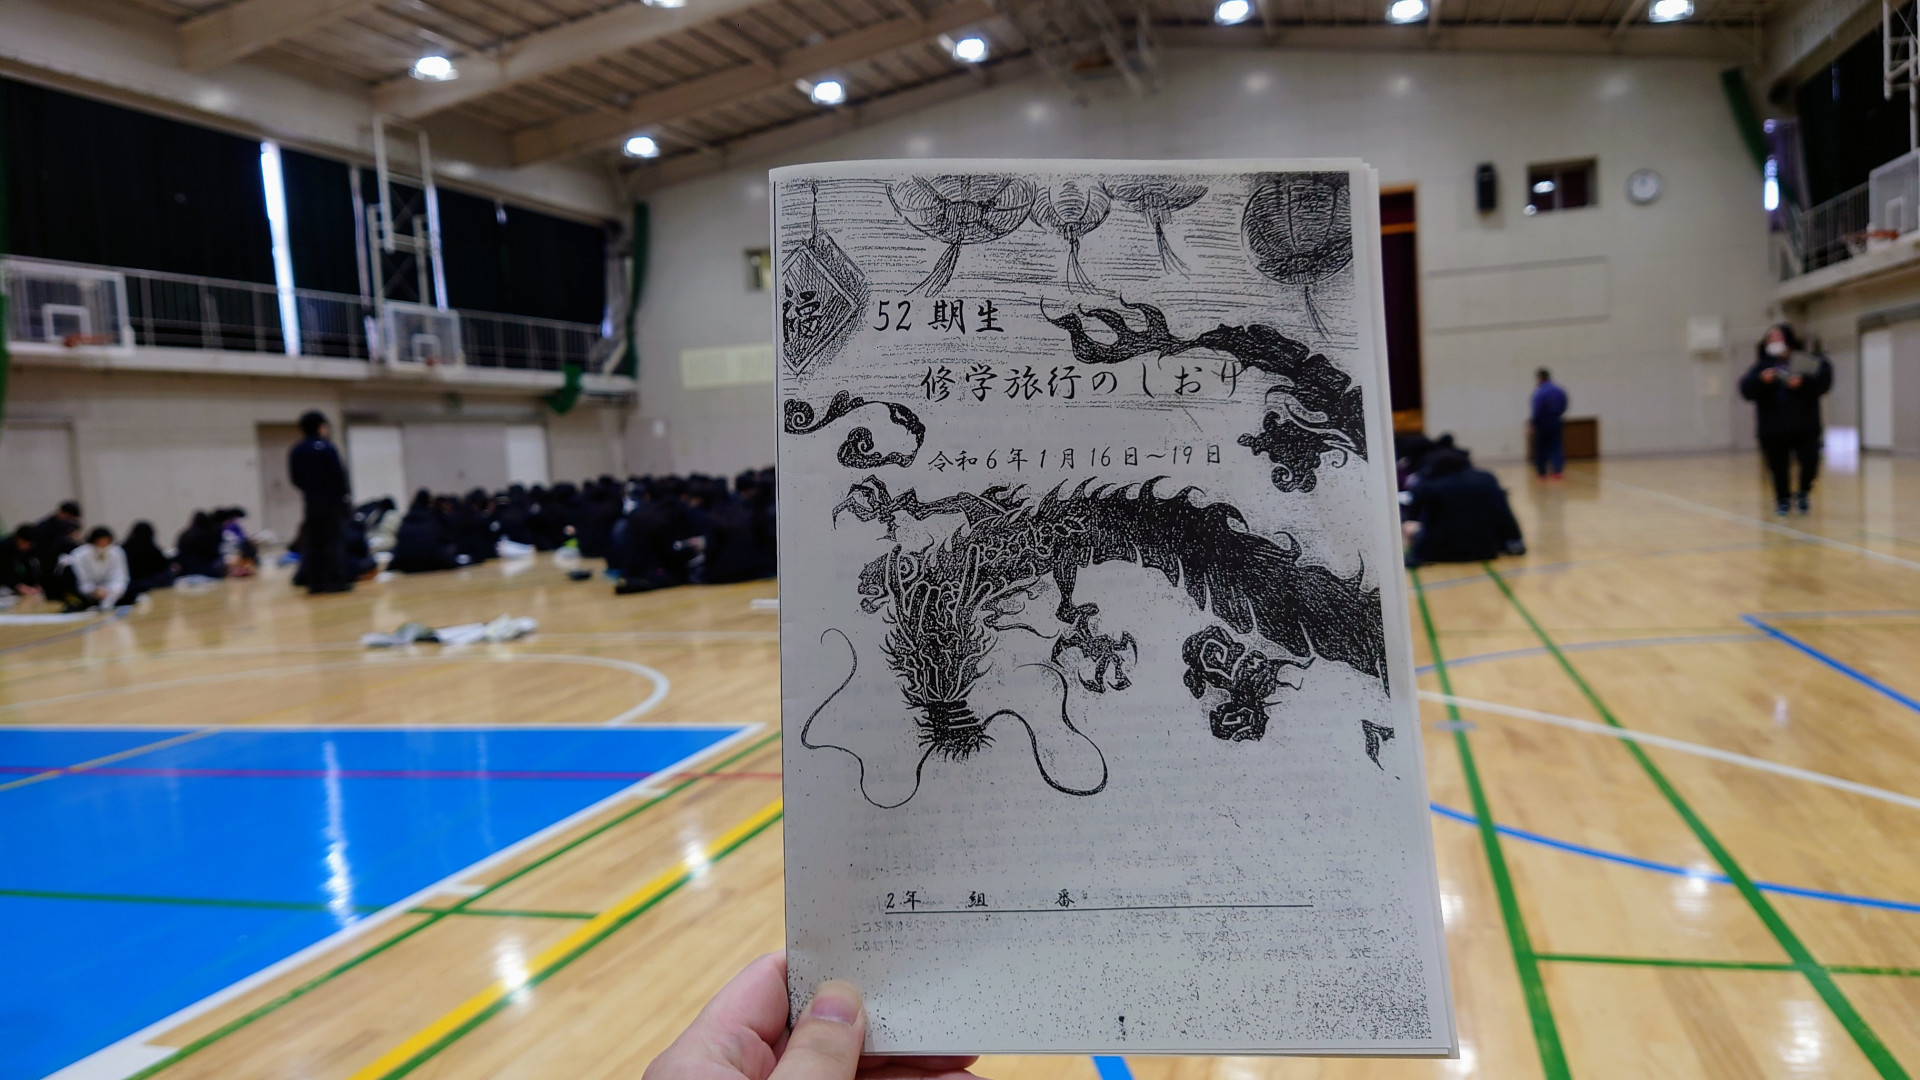 福
52期生
修学旅行のしおり
令和6年1月16日～19日
2年 組 番